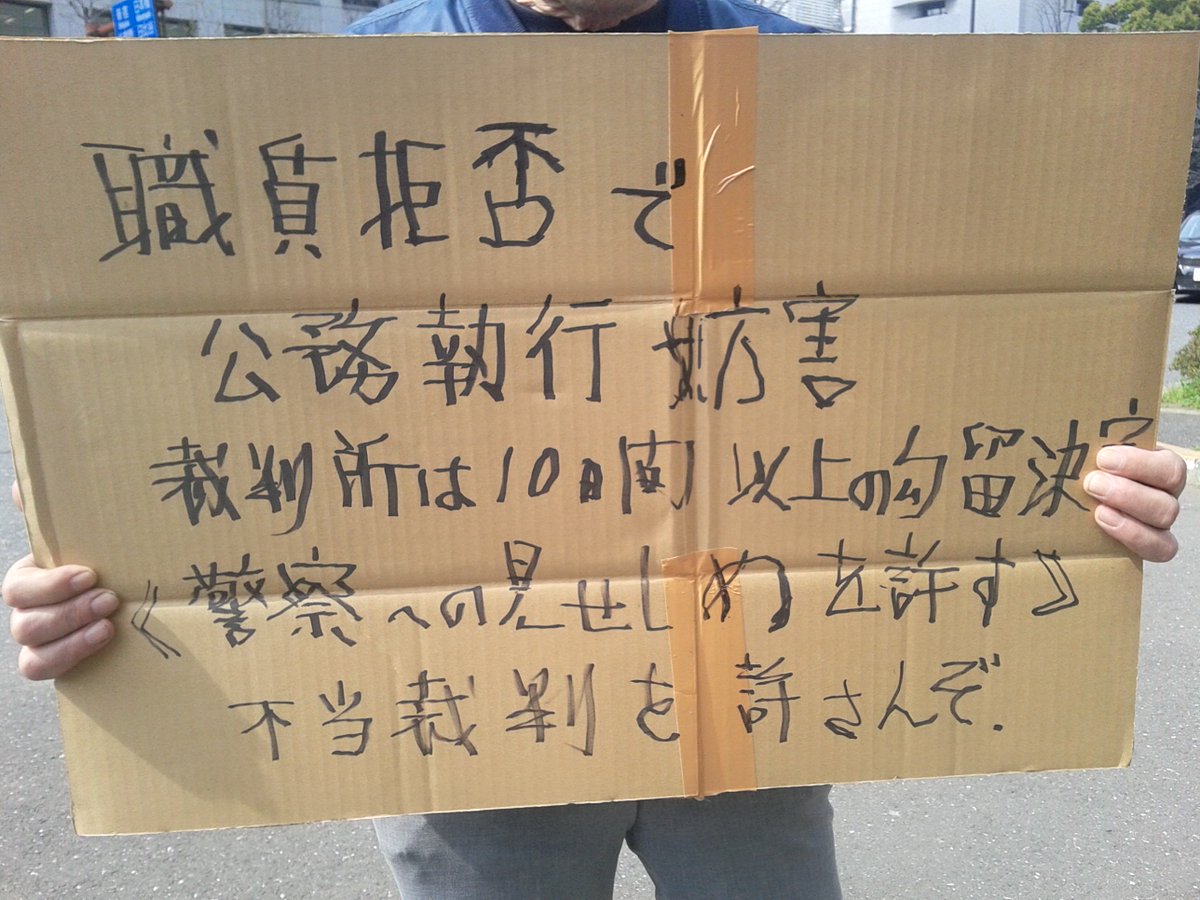 職質拒否で
公務執行妨害
裁判所は10日間以上の勾留決定
《警察への見せしめを許す》
不当裁判を許さんぞ.